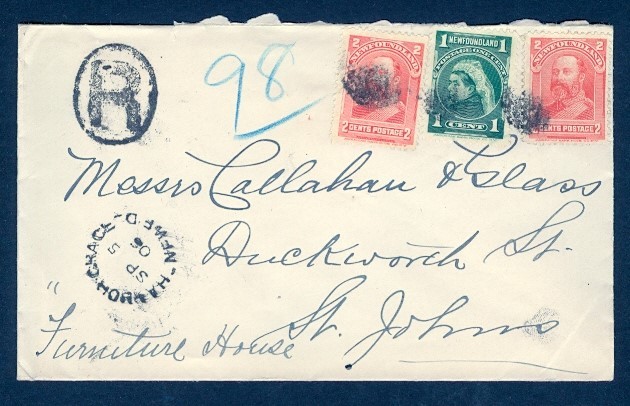 R
98
2 NEWFOUNDLAND 2
2 CENTS POSTAGE 2
1 NEWFOUNDLAND 1
POSTAGE ONE CENT
1 CENT 1
2 NEWFOUNDLAND 2
2 CENTS POSTAGE 2
Messrs Callahan & Glass
Duckworth St.
St. Johns
"Furniture House
HARBOR GRACE - NEWF'D
SP 5
06